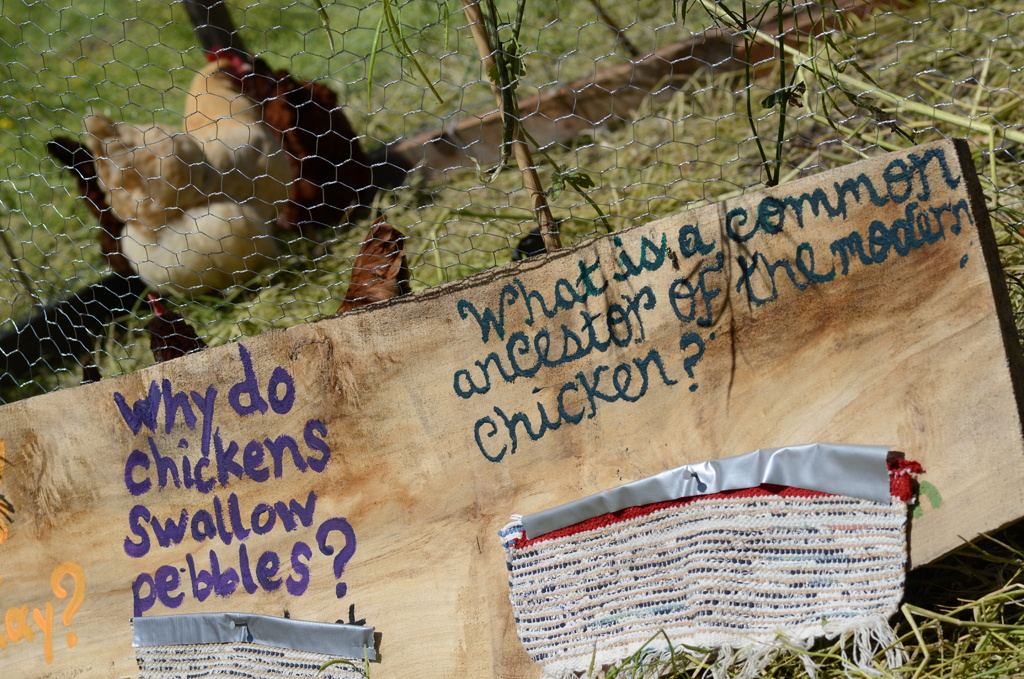 Why do
chickens
swallow
pebbles?
What is a common
ancestor of the modern
chicken?